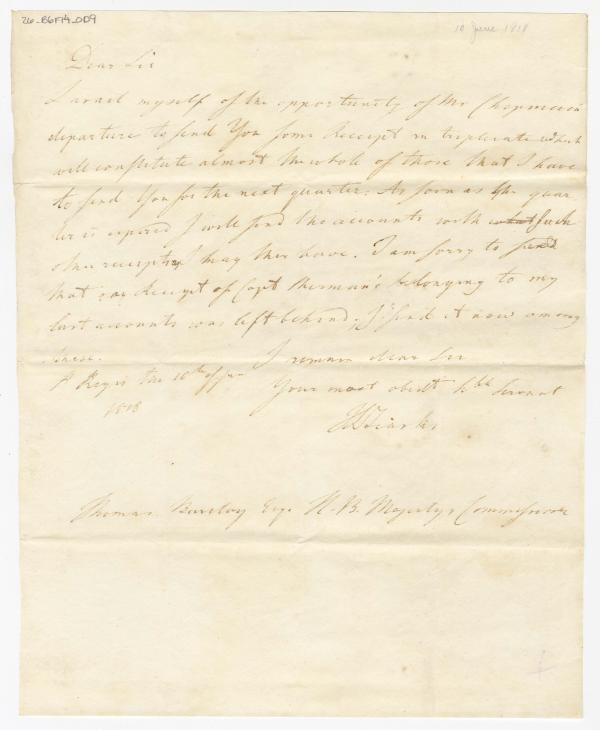 26_B6F14_009
10 June 1818
Dear Sir
I avail myself of the opportunity of Mr Chapman's
departure to send You some Receipt in triplicate which
will constitute almost the whole of those that I have
to send You for the next quarter. As soon as the quar
ter is expired I will send the accounts with such
other receipts I may then have. I am sorry to
that one Receipt of Capt Sherman's belonging to my
last accounts was left behind; I send it now among
these.
I remain dear Sir
St Regis the 10th of June
Your most obedt hble Servant
1818
Tiarks
Thomas Barclay Esqe H. B. Majestys Commissioner